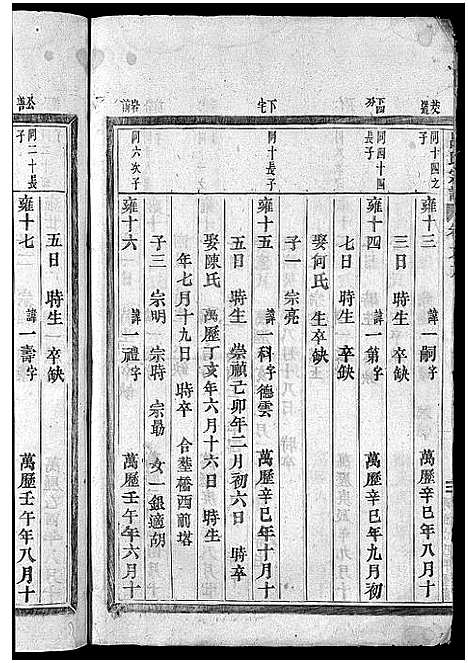 阿十四之
子
雍十三 諱一嗣字 萬歷辛巳年八月十
三日 時生 卒缺
阿四十四
長子
雍十四 諱一第字 萬歷辛巳年九月初
七日 時生 卒缺
娶何氏 生卒缺
子一 宗亮
下宅
阿十長子
雍十五 諱一科字德雲 萬歷辛巳年十月十
五日 時生 崇禎己卯年二月初六日 時卒
娶陳氏 萬歷丁亥年六月十六日 時生
年七月十九日 時卒 合塟橋西前塔
子三 宗明 宗時 宗最 女一銀適胡
岩前
阿六次子
雍十六 諱一禮字 萬歷壬午年六月十
五日 時生 卒缺
阿二十長
子
雍十七 諱一壽字 萬歷壬午年八月十